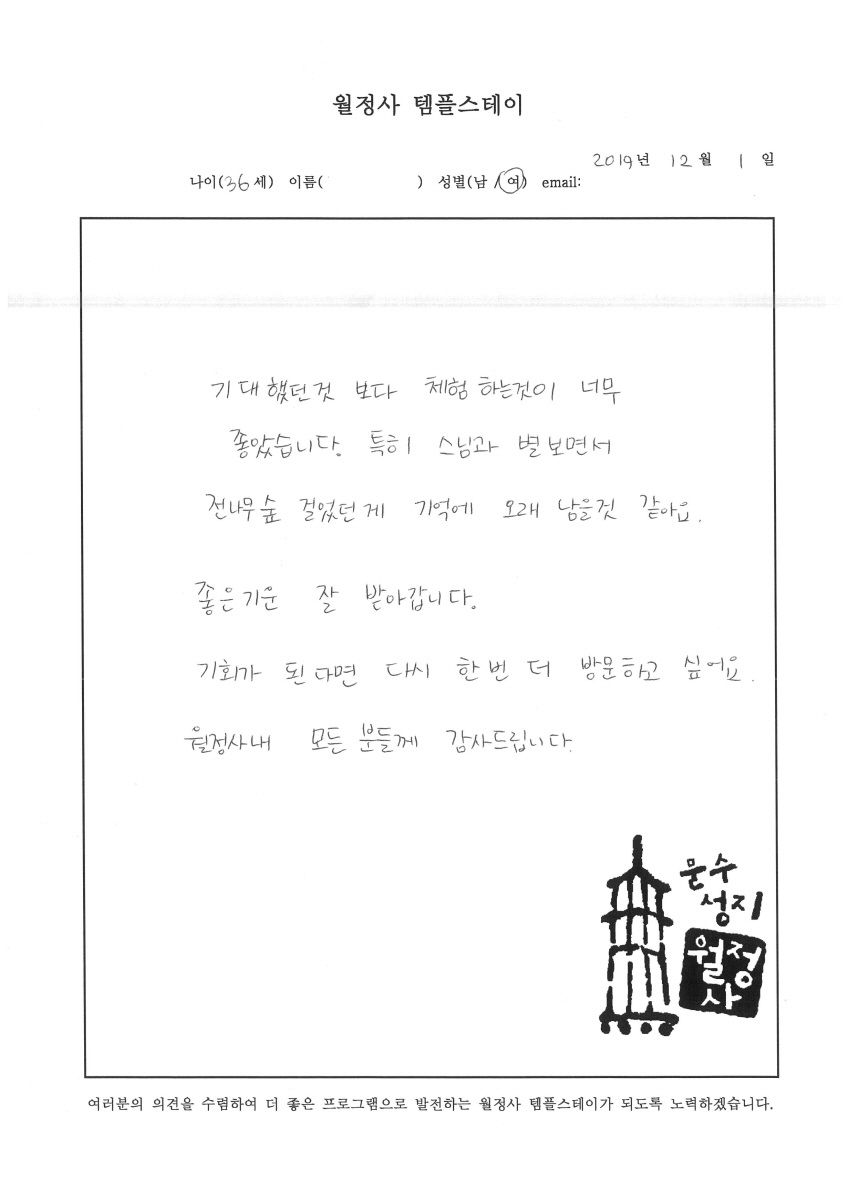 월정사 템플스테이
2019년 12월 1일
나이(36세) 이름( ) 성별(남/여) email:
기대했던것 보다 체험 하는것이 너무
좋았습니다. 특히 스님과 별보면서
전나무숲 걸었던게 기억에 오래 남을것 같아요.
좋은기운 잘 받아갑니다.
기회가 된다면 다시 한번 더 방문하고 싶어요.
월정사내 모든 분들께 감사드립니다.
문수
성지
월정
사
여러분의 의견을 수렴하여 더 좋은 프로그램으로 발전하는 월정사 템플스테이가 되도록 노력하겠습니다.